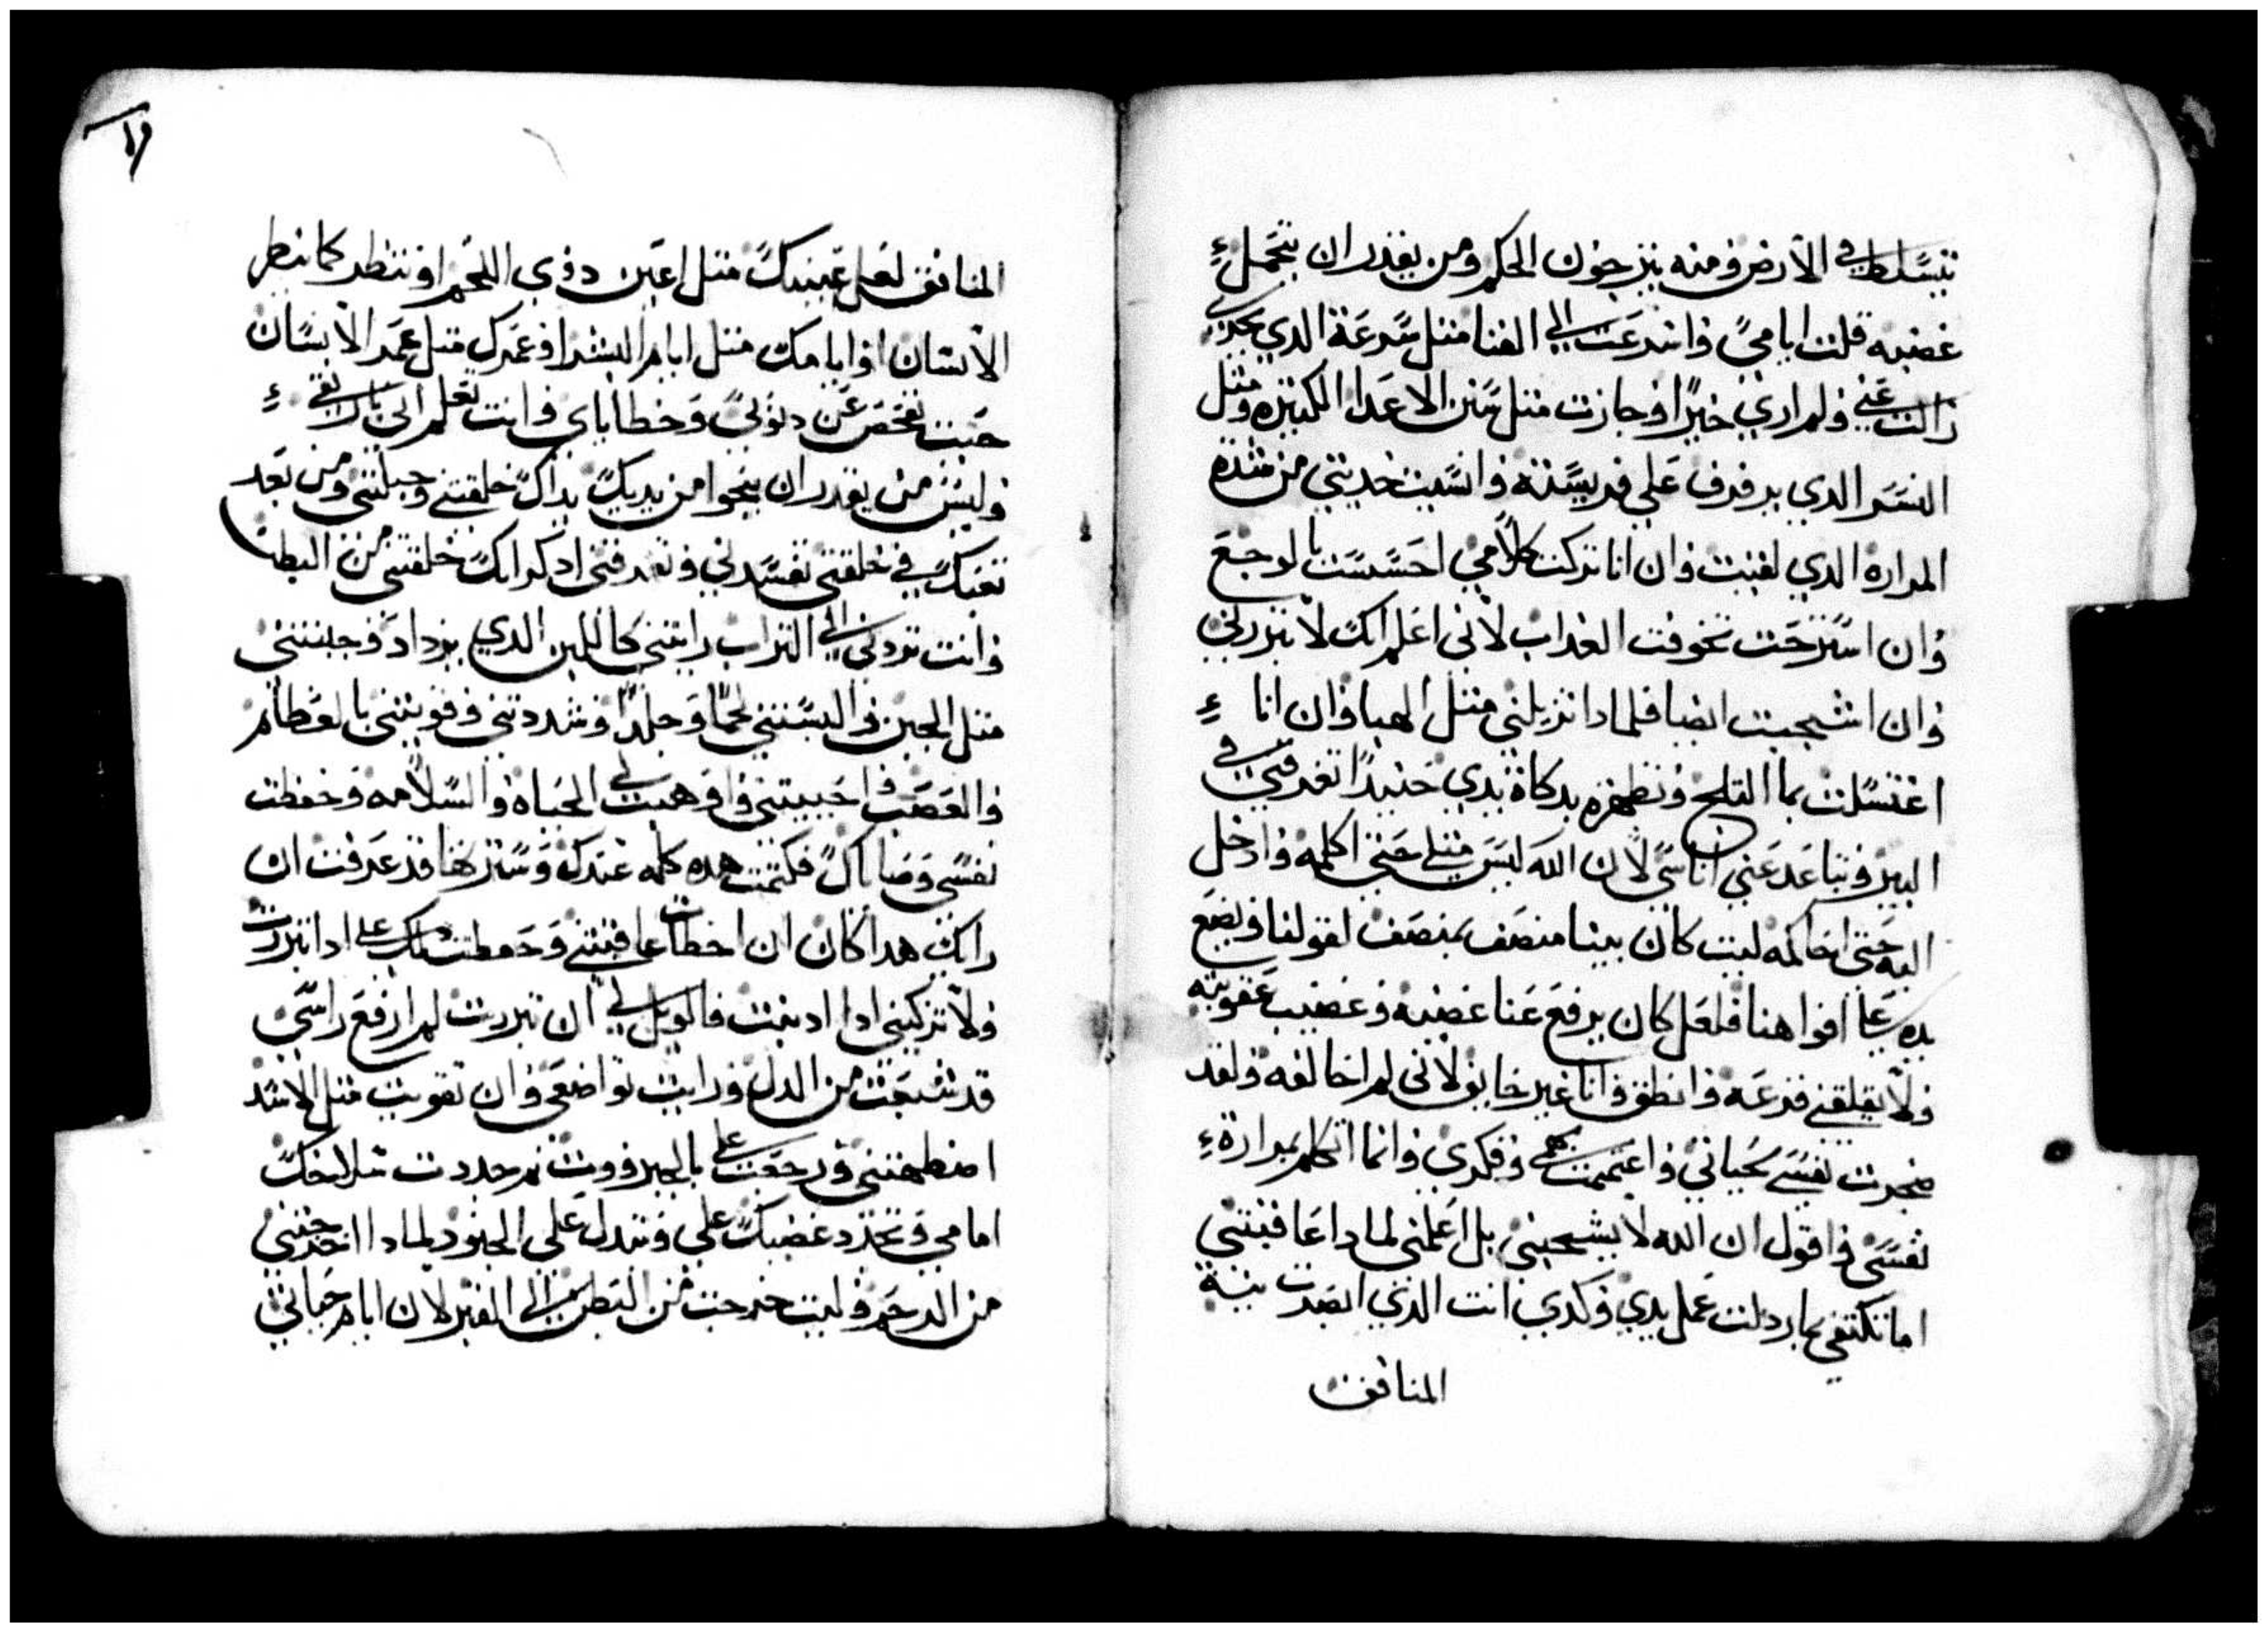 يتسلط في الارض ومنه يترجون الحكم ومن يقدر ان يتحمل
غضبه قلت ايامي واسرعت الى الفنا متل سرعة الدي يجري
زالت عني ولم اري خيرا وجازت متل سفن الاعدا الكتيره ومتل
النسر الدي يرفرف علي فريسته وانسيت حديتي من شدة
المرارة الدي لقيت وان انا تركت كلامي احسست بالوجع
وان استرحت تخوفت العداب لاني اعلم انك لا تبررني
وان اشجبت ايضا فلمادا تزيلني متل الهبا وان انا
اغتسلت بما التلج وتطهره بدكاة يدي حنيدا تغرقني في
البير وتباعد عني اناسي لان الله ليس متلي حتي اكلمه وادخل
اليه حتي احاكمه ليت كان بيننا منصف بمنصف لقولنا ويضع
يده علي افواهنا فلعل كان يرفع عنا غضبه وغضيب عقوبته
ولا يقلقني فزعه وانطق وانا غير خايف لاني لم اخالفه ولقد
ضجرت نفسي بحياتي واغتميت بهمي وفكري وانما اتكلم بمرارة
نفسي واقول ان الله لا يشجبني بل اعلمني لمادا عاقبتني
اما تكتفي بما ردلت عمل يدي وكدي انت الدي ابصرت نية
المنافق
المنافق لعل عينيك متل اعين دوي اللحم او تنظر كما ينظر
الانسان او ايامك متل ايام البشر او عمرك متل عمر الانسان
حيت تفحص عن دنوبي وخطاياي وانت تعلم اني باراتقي
وليس من يقدر ان ينجوا من يديك يداك خلقتني وجبلتني ومن بعد
تعبك في خلقتي تفسدني وتعرفني ادكر انك خلقتني من الطين
وانت تردني الي التراب رايتني كاللبن الدي يزداد وجبنتني
متل الجبن والبستني لحما وجلدا وشددتني وقويتني بالعظام
والعصب واحييتني واوهبت لي الحياة والسلامه وحفظت
نفسي وصاياك فكتمت هده كلمه عندك وسترتها قد عرفت ان
رايك هدا كان ان اخطات عاقبتني وحفظت علي ادا تبررت
ولا تزكيني ادا ادنبت فالويل لي ان تبررت لم ارفع راسي
قد شبعت من الدل ورايت تواضعي وان تقويت متل الاسد
اصطهدتني ورجعت علي بالجبروت تم جددت
امامي وتجدد غضبك علي وتبدل علي الجنود لمادا اخرجتني
من الرحم وليت خرجت من البطن الي القبر لان ايام حياتي